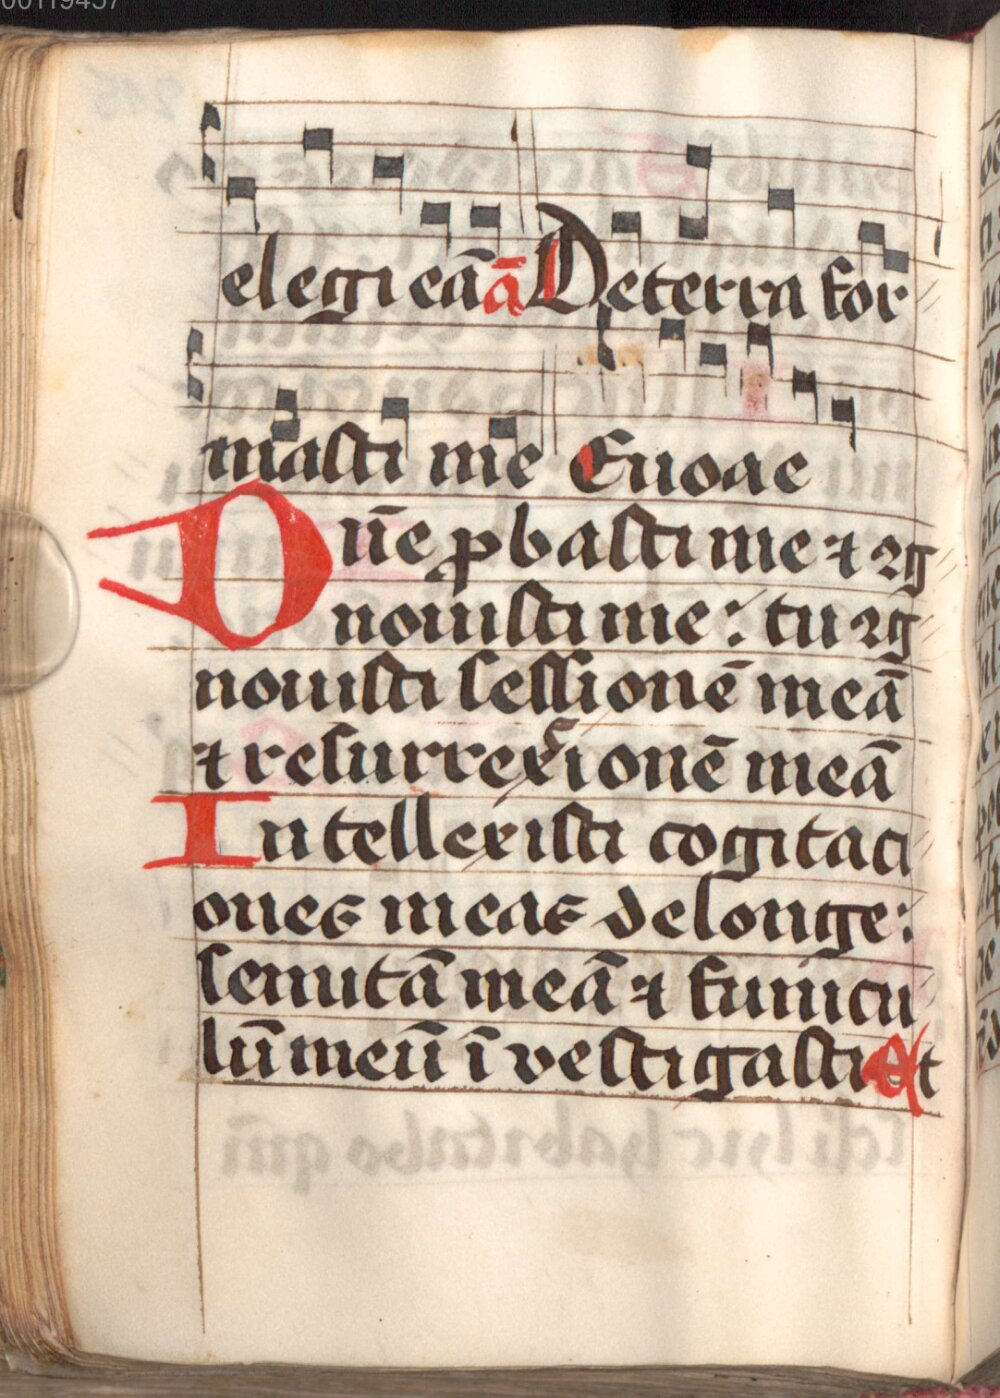 00119457
elegi eā ā De terra for
masti me Euoae
Dn̄e ꝓbasti me ⁊ ꝯg
nouisti me: tu ꝯg
nouisti sessionē meā
⁊ resurrexionē meā
Intellexisti cogitaci
ones meas de longe:
semitā meā ⁊ funicu
lū meū īvestigasti Et